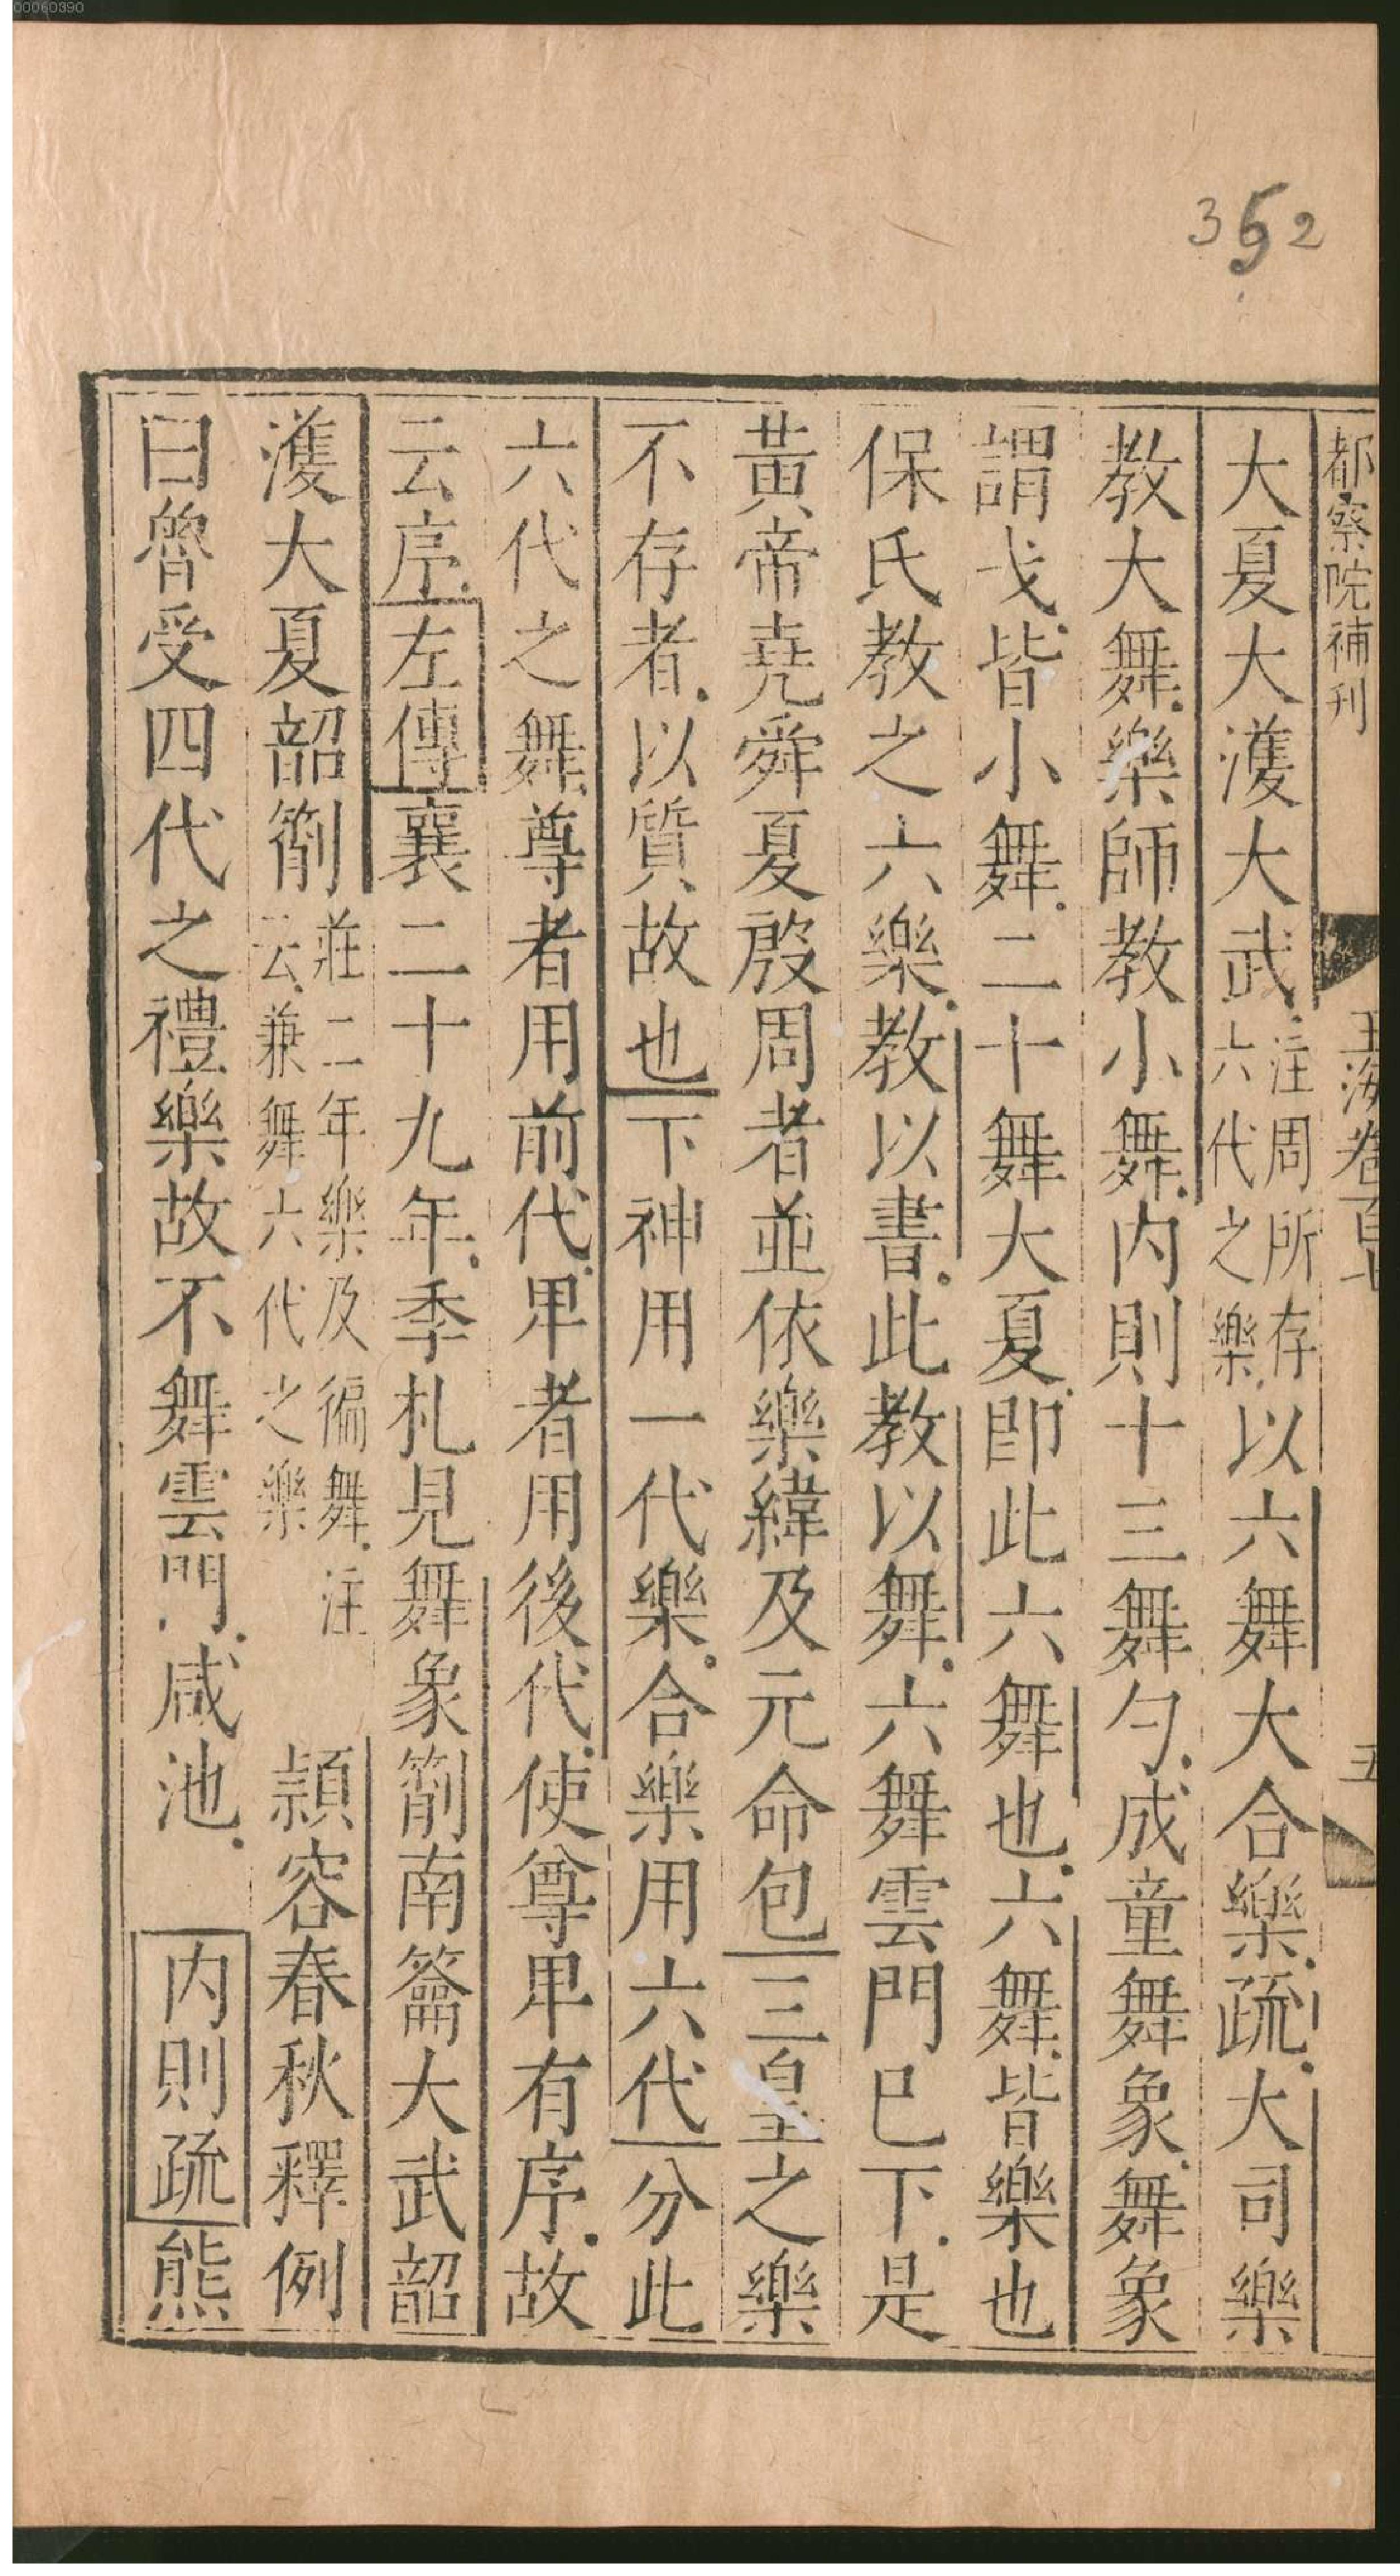 00060390
352
都察院補刊
玉海卷百七
五
大夏大濩大武注周所存六代之樂以六舞大合樂疏大司樂
教大舞樂師教小舞内則十三舞勺成童舞象舞象
謂戈皆小舞二十舞大夏即此六舞也六舞皆樂也
保氏教之六樂教以書此教以舞六舞雲門巳下是
黃帝堯舜夏殷周者並依樂緯及元命包三皇之樂
不存者以質故也下神用一代樂合樂用六代分此
六代之舞尊者用前代卑者用後代使尊卑有序故
云序左傳襄二十九年季札見舞象箾南籥大武韶
濩大夏韶箾莊二年樂及徧舞注云兼舞六代之樂頴容春秋釋例
曰魯受四代之禮樂故不舞雲門咸池内則疏熊